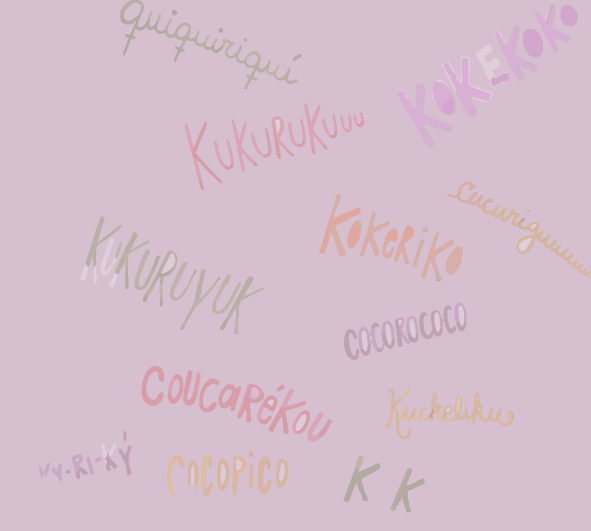 quiquiriquí
KOKEKOKO
KUKURUKUuuu
cucuriguuuuu
KOKERiKO
KUKURUYUK
COCOROCOCO
COUCARÉKOU
Kuckeliku
KY-RI-KÝ
COCOPiCO
K K